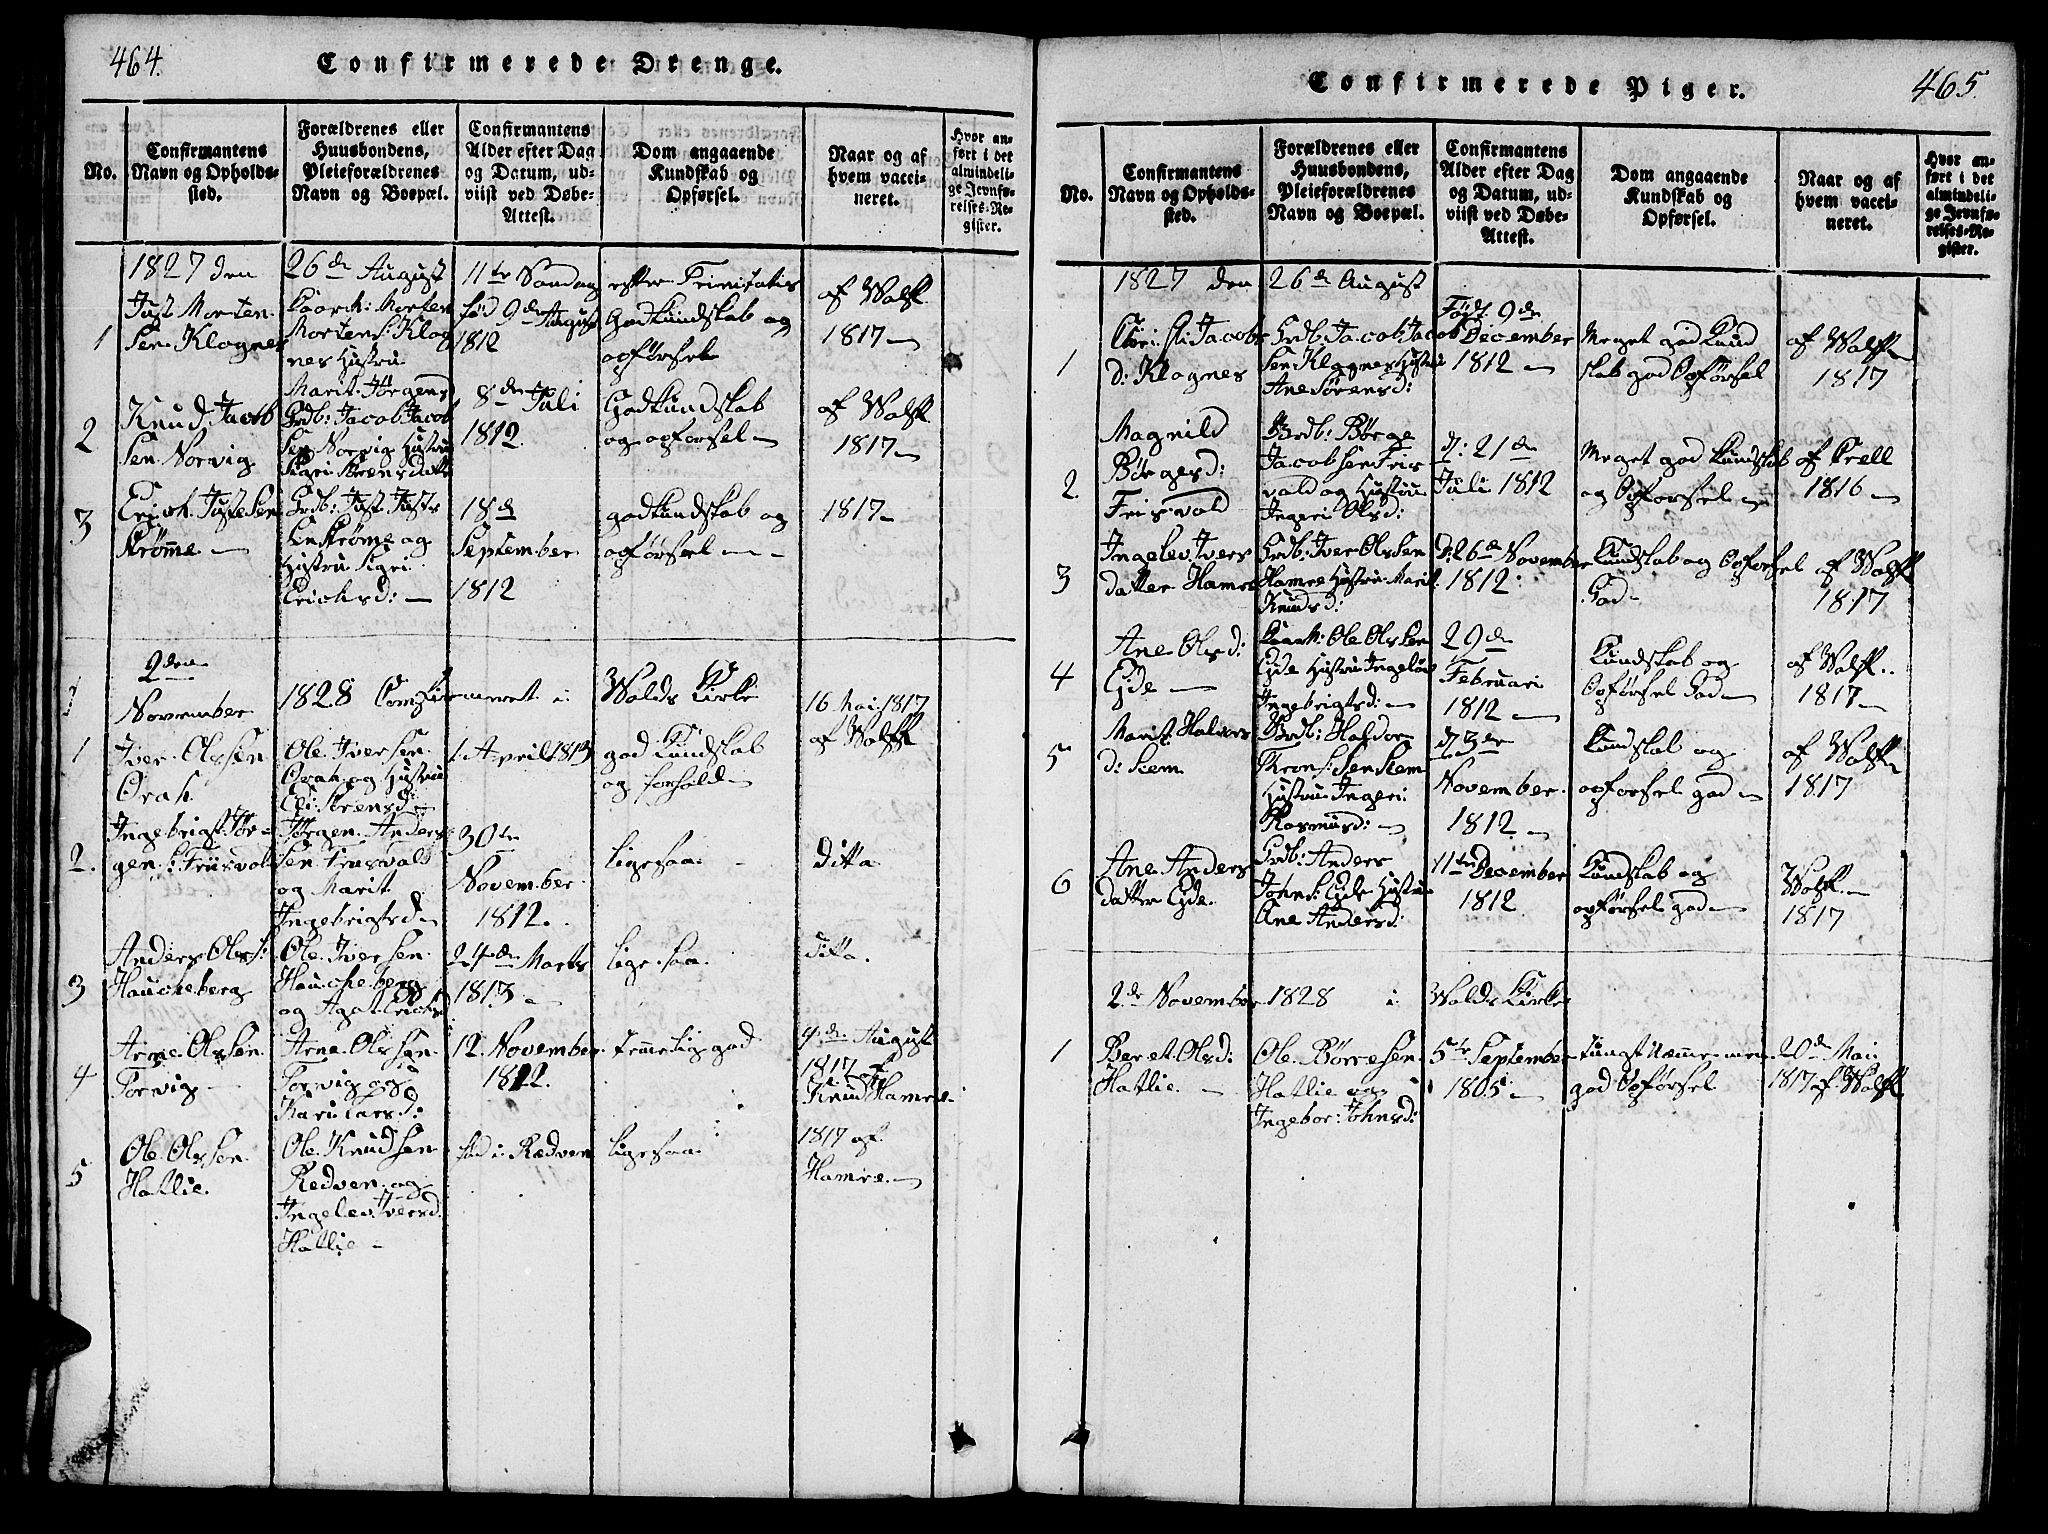 464.
Confirmerede Drenge.
No.
Confirmantens
Navn og Opholds-
sted.
Forældrenes eller
Huusbondens,
Pleieforældrenes
Navn og Boepæl.
Confirmantens
Alder efter Dag
og Datum, ud-
viist ved Døbe-
Attest.
Dom angaaende
Kundskab og
Opførsel.
Naar og af
hvem vacci-
neret.
Hvor an-
ført i det
almindeli-
ge Jevnfø-
relses-Re-
gister.
1827 den 26de August 11te Søndag efter Trinitatis
1
Just Morten
Sen Klognes
Morten
Mortens: Klog
nes Hustru
Marit Jørgensd
fød 9de August
1812
God kundskab og
opførsel
af Wolff
1817
2
Knud Jacob
Sen Norvig
Grdb: Jacob Jacob
Sen Norvig Hustru
Sigri
8de Juli
1812
God kundskab
og opførsel
af Wolff
1817
3
Erich JustSen
Strømme
Grdb: Just Just
Sen Strømme og
Hustru Sigri
Erichsd:
18de
September
1812
god kundskab og
opførsel
1817
2den
November 1828 Confirmeret i Wolds Kirke
1
Iver OlsSen
Orah
Ole IverSen
Orah og Hustru
Eli
1. April 1813
god Kundskab
og forhold
16 Mai 1817
af Wolff
2.
Ingebrigt Jør-
gens: Friisvold
Jørgen Anders
Sen Friisvold
og Marit
Ingebrigtsd
30te
November
1812.
ligesaa
Ditto
3
Anders Ols:
Haucheberg
Ole IverSen
Haucheberg
og
24de Marts
1813
ligesaa.
ditto.
4
Arne OlsSen
Torvig
Arne OlsSen
Torvig og
Kari Larsd:
12. November
1812.
temmelig god
4de August
1817 af
Knud Hamre
5
Ole OlsSen
Hatlie
Ole KnudSen
Redven og
Ingelev Iversd.
Hatlie
fød i Rædven
ligesaa
1817 af
Hamre
465.
Confirmerede Piger.
No.
Confirmantens
Navn og Opholds-
sted.
Forældrenes eller
Huusbondens,
Pleieforældrenes
Navn og Boepæl.
Confirmantens
Alder efter Dag
og Datum, ud-
viist ved Døbe-
Attest.
Dom angaaende
Kundskab og
Opførsel.
Naar og af
hvem vacci-
neret.
Hvor an-
ført i det
almindeli-
ge Jevnfø-
relses-Re-
gister.
1827 den 26de August
1
Jacobs
d: Klognes
Grdb: Jacob Jacob
Sen Klognes Hustru
Ane Sørensd:
Født 9de
December
1812
Meget god Kund
skab god Opførsel
af Wolff
1817
2
Magnild
Børgesd:
Friisvold
Grdb: Børge
JacobSen Friis
vold og Hustru
Ingeri Olsd:
d: 21de
Juli 1812
Meget god Kundskab
og Opførsel
af Krell
1816
3
Ingelev Ivers
datter Hamre
Grdb: Iver OlsSen
Hamre Hustru Marit
Knudsd:
d: 26de November
1812
Kundskab og Opførsel
God
af Wolff
1817
4
Ane Olsd:
Eide
Ole OlsSen
Eide Hustru Ingeløv
Ingebrigtsd:
29de
Februari
1812
Kundskab og
Opførsel God
af Wolff.
1817
5
Marit Halvors
d: Siem
Grdb: Haldor
TronsSen Siem
Hustru Ingeri
Rasmusd:
d 3de
November
1812
Kundskab og
opførsel god
af Wolff
1817
6
Ane Anders
datter Eide.
Grdb: Anders
Johns: Eide Hustru
Ane Andersd:
11te December
1812
Kundskab og
opførsel god
Wolff
1817
2de November 1828 i Wolds Kirke
1
Beret Olsd:
Hatlie
Ole BørreSen
Hatlie og
Ingebor: Johnsd:
5te September
1805
tungt Næmme men
god Opførsel
20de Mai
1817 af Wolff